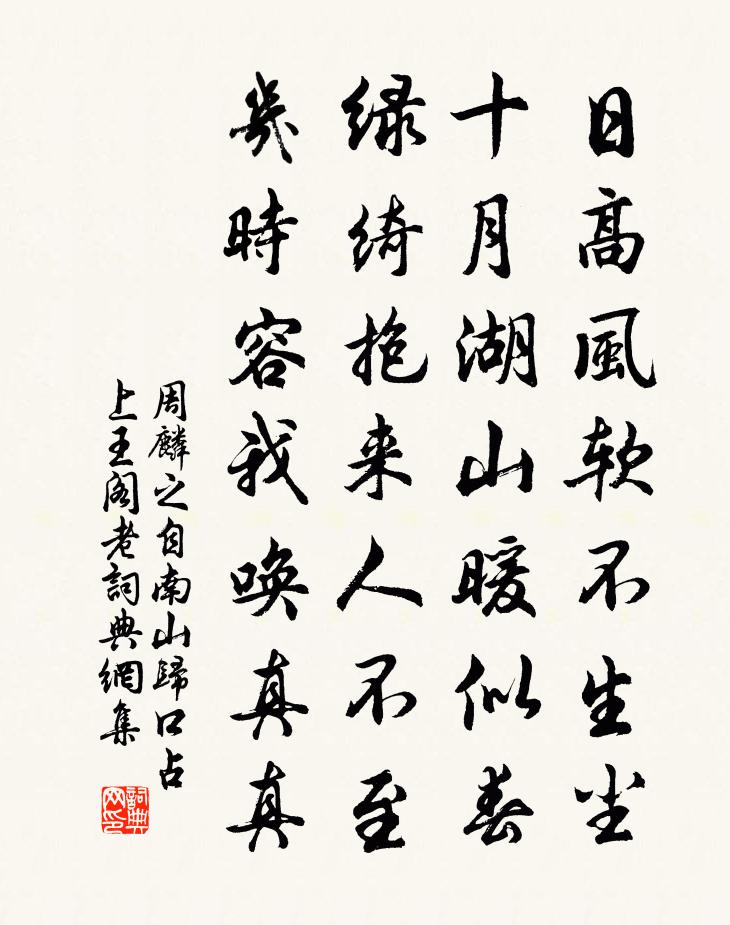 日高風软不生尘
十月湖山暖似春
緑绮抱来人不至
幾時容我唤真真
周麟之自南山歸口占
上王阁老詞典網集
詞典网印